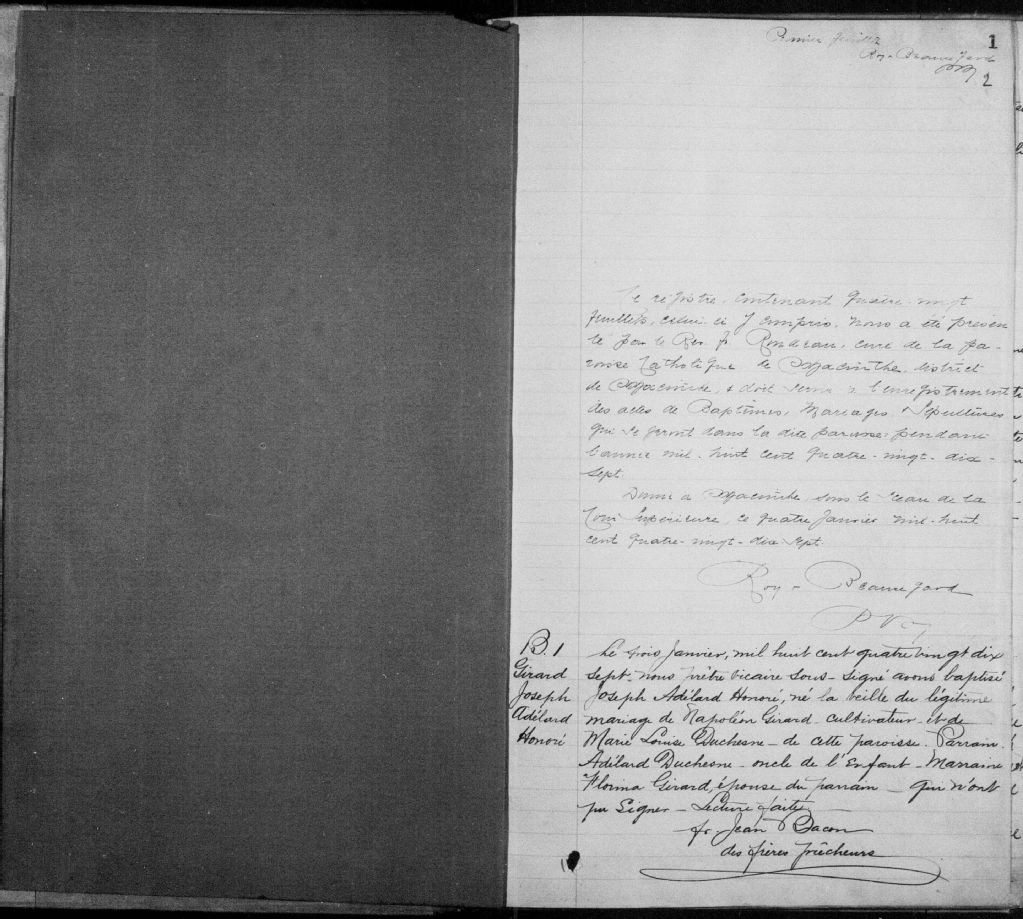 1
Premier feuillet
Roy & Beauregard
2
Ce registre, contenant quatre-vingt
feuillets, celui-ci y compris, nous a été présen
té par le Rev. Rondeau, curé de la pa-
roisse Catholique de St Hyacinthe, district
de St Hyacinthe, & doit servir à l'enregistrement
des actes de Baptêmes, Mariages & Sépultures
qui se feront dans la dite paroisse pendant
l'année mil-huit cent quatre-vingt-dix-
sept.
Donné à St Hyacinthe, sous le sceau de la
Cour Supérieure, ce quatre Janvier mil-huit
cent quatre-vingt-dix-sept.
Roy & Beauregard
B. 1
Girard
Joseph
Adélard
Honoré
Le trois Janvier, mil huit cent quatre vingt dix
sept, nous prêtre vicaire sous-signé avons baptisé
Joseph Adélard Honoré, né la veille du légitime
mariage de Napoléon Girard cultivateur et de
Marie Louise Duchesne - de cette paroisse. Parrain
Adélard Duchesne - oncle de l'Enfant - Marraine
Florina Girard, épouse du parrain - qui n'ont
pu Signer - Lecture faite
fr Jean Bacon
des frères prêcheurs